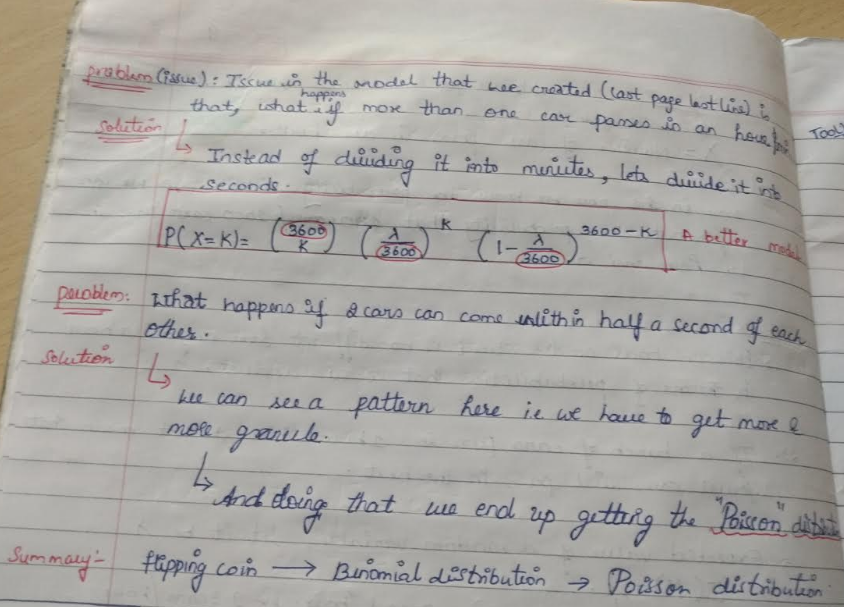 problem (issue): Issue in the model that wee created (last page last line) is
that, what happens if more than one car passes in an hour
solution
Instead of dividing it into minutes, lets divide it into
seconds.
P(X=K)= (3600 K) (λ/3600)^K (1-λ/3600)^3600-K A better model
problem: What happens if 2 cars can come within half a second of each
other.
solution
we can see a pattern here i.e we have to get more &
more granule.
And doing that we end up getting the "Poisson"
Summary:- flipping coin → Binomial distribution → Poisson distribution.
Tool